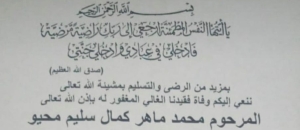 بسم الله الرحمن الرحيم
يا أيتها النفس المطمئنة ارجعي إلى ربك راضية مرضية
فادخلي في عبادي وادخلي جنتي
(صدق الله العظيم)
بمزيد من الرضى والتسليم بمشيئة الله تعالى
ننعي إليكم وفاة فقيدنا الغالي المغفور له بإذن الله تعالى
المرحوم محمد ماهر كمال سليم محيو